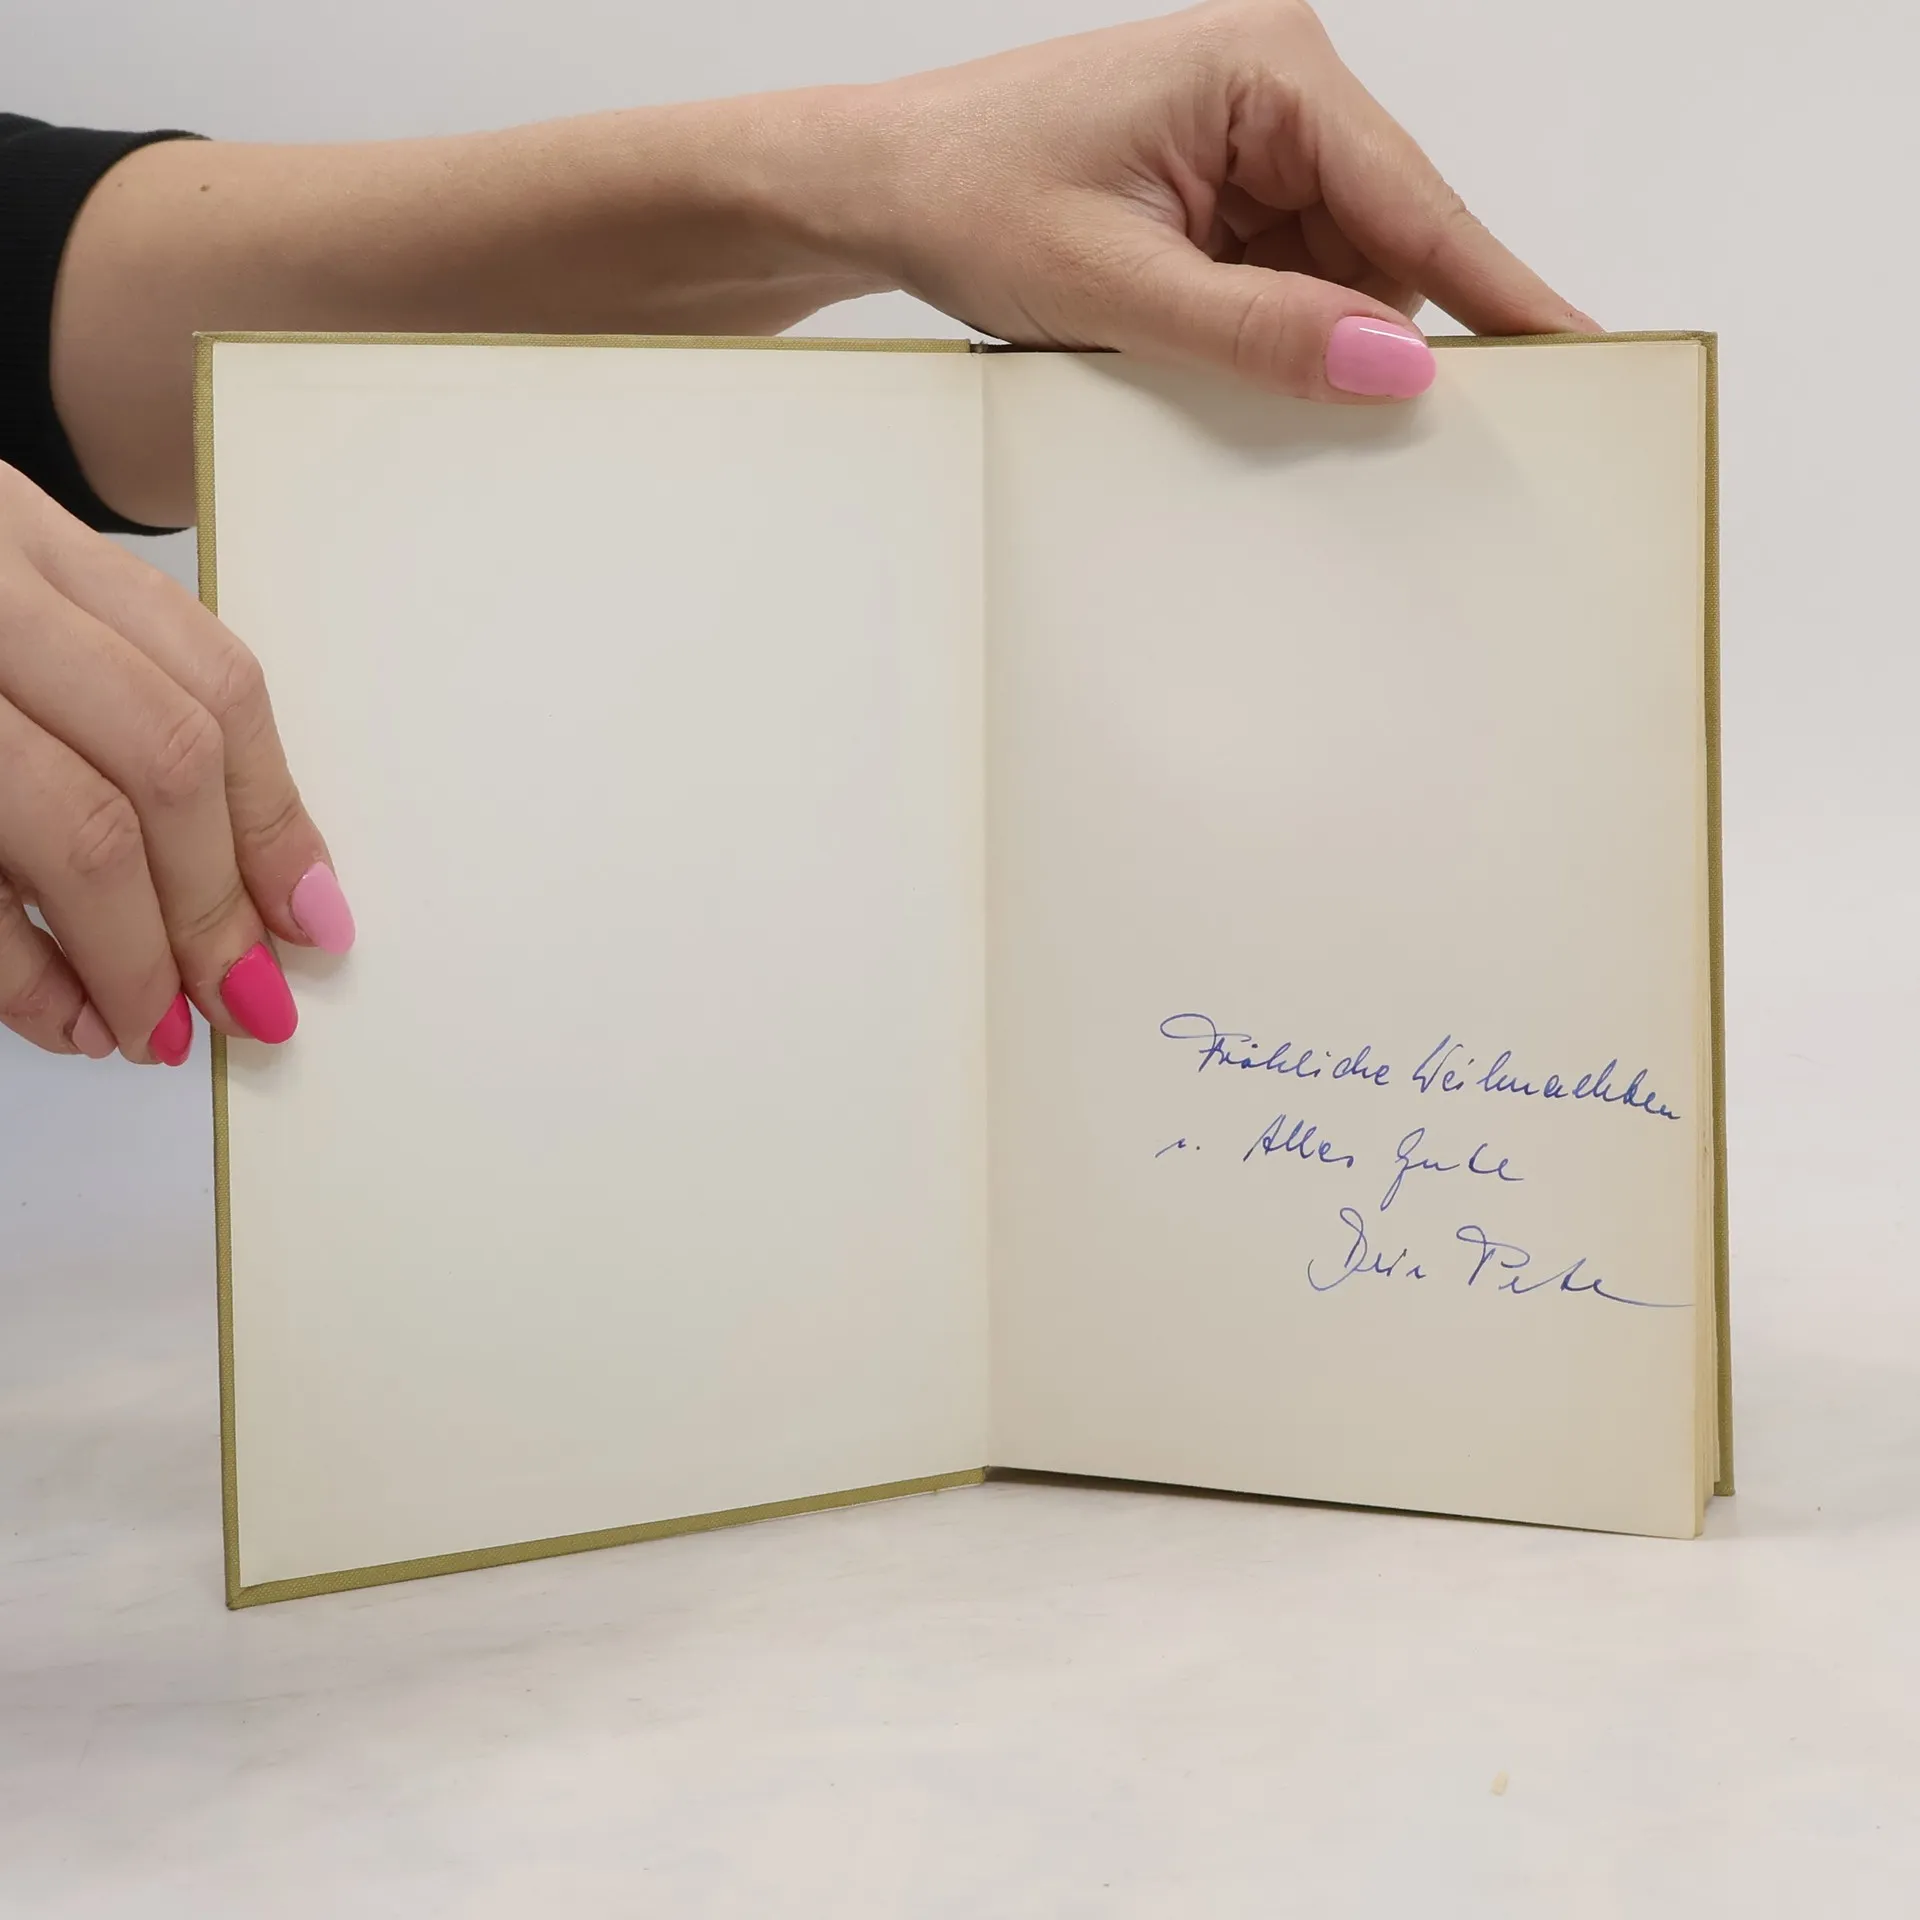 Fröhliche Weihnachten
u. Alles Gute
Dein Peter